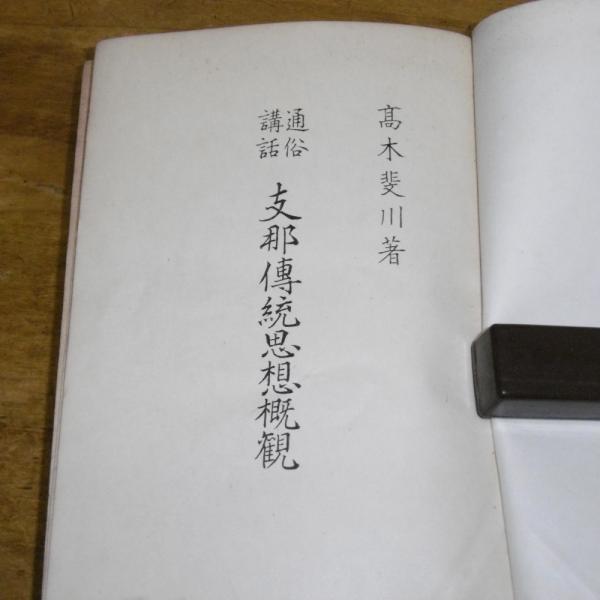 髙木斐川著
通俗
講話
支那傳統思想概観